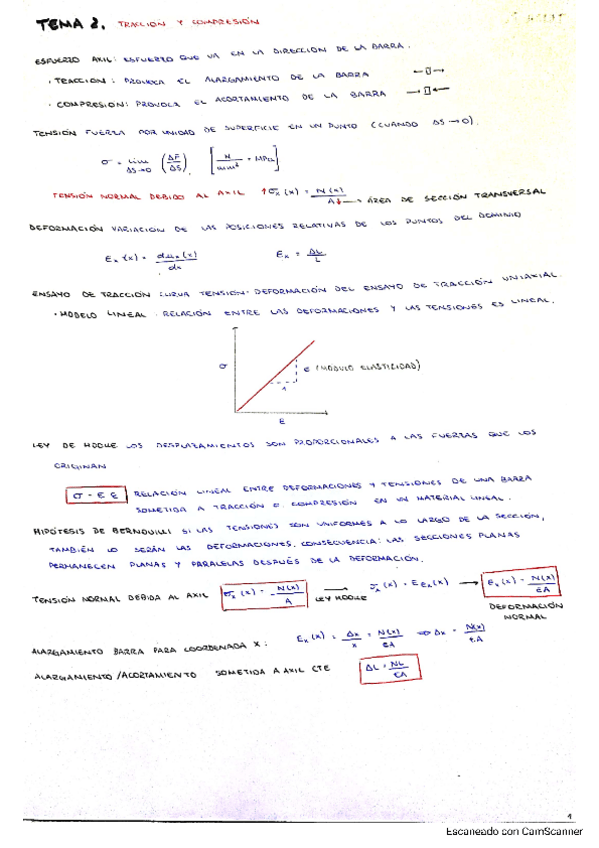 TEMA 2. TRACCION Y COMPRESIÓN
ESFUERZO AXIL: ESFUERZO QUE VA EN LA DIRECCION DE LA BARRA.
· TRACCION: PROVOCA EL ALARGAMIENTO DE LA BARRA ←▯→
· COMPRESION: PROVOCA EL ACORTAMIENTO DE LA BARRA →▯←
TENSIÓN FUERZA POR UNIDAD DE SUPERFICIE EN UN PUNTO (CUANDO ΔS→0).
σ = lim ΔS→0 (ΔF/ΔS) [N/mm² = MPa]
TENSIÓN NORMAL DEBIDO AL AXIL ↑σx(x) = N(x)/A↓ → ÁREA DE SECCIÓN TRANSVERSAL
DEFORMACIÓN VARIACION DE LAS POSICIONES RELATIVAS DE LOS PUNTOS DEL DOMINIO
Ex(x) = dux(x)/dx Ex = ΔL/L
ENSAYO DE TRACCIÓN CURVA TENSION-DEFORMACIÓN DEL ENSAYO DE TRACCIÓN UNIAXIAL.
· MODELO LINEAL: RELACIÓN ENTRE LAS DEFORMACIONES Y LAS TENSIONES ES LINEAL.
σ
E (MODULO ELASTICIDAD)
1
E
LEY DE HOOKE LOS DESPLAZAMIENTOS SON PROPORCIONALES A LAS FUERZAS QUE LOS
ORIGINAN
σ = E ε RELACIÓN LINEAL ENTRE DEFORMACIONES Y TENSIONES DE UNA BARRA
SOMETIDA A TRACCIÓN O COMPRESIÓN EN UN MATERIAL LINEAL.
HIPÓTESIS DE BERNOUILLI SI LAS TENSIONES SON UNIFORMES A LO LARGO DE LA SECCIÓN,
TAMBIÉN LO SERÁN LAS DEFORMACIONES. CONSECUENCIA: LAS SECCIONES PLANAS
PERMANECEN PLANAS Y PARALELAS DESPUÉS DE LA DEFORMACIÓN.
TENSIÓN NORMAL DEBIDA AL AXIL σx(x) = N(x)/A → LEY HOOKE σx(x) = E εx(x) → Ex(x) = N(x)/EA
DEFORMACIÓN
NORMAL
ALARGAMIENTO BARRA PARA COORDENADA X: Ex(x) = Δx/x = N(x)/EA ⇒ Δx = N(x)/EA
ALARGAMIENTO/ACORTAMIENTO SOMETIDA A AXIL CTE ΔL = NL/EA
1
Escaneado con CamScanner